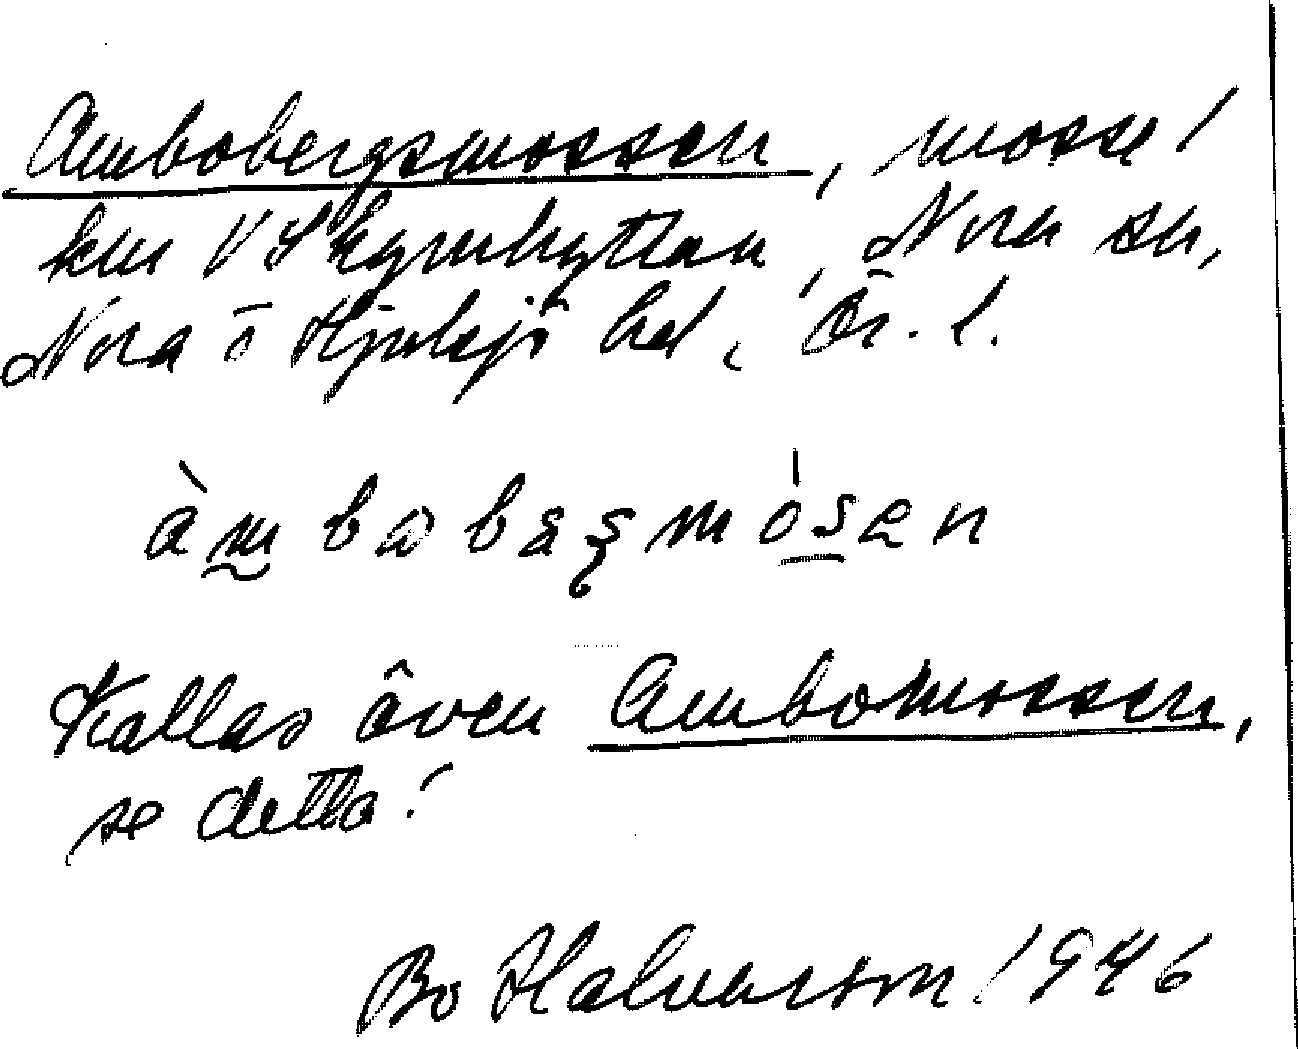 Ambobergsmossen, mosse 1
km V Skyrhyttan, Nora sn,
Nora o Hjulsjö hd, Ör. l.
Kallas även Ambomossen,
se detta!
Bo Halvarson 1946